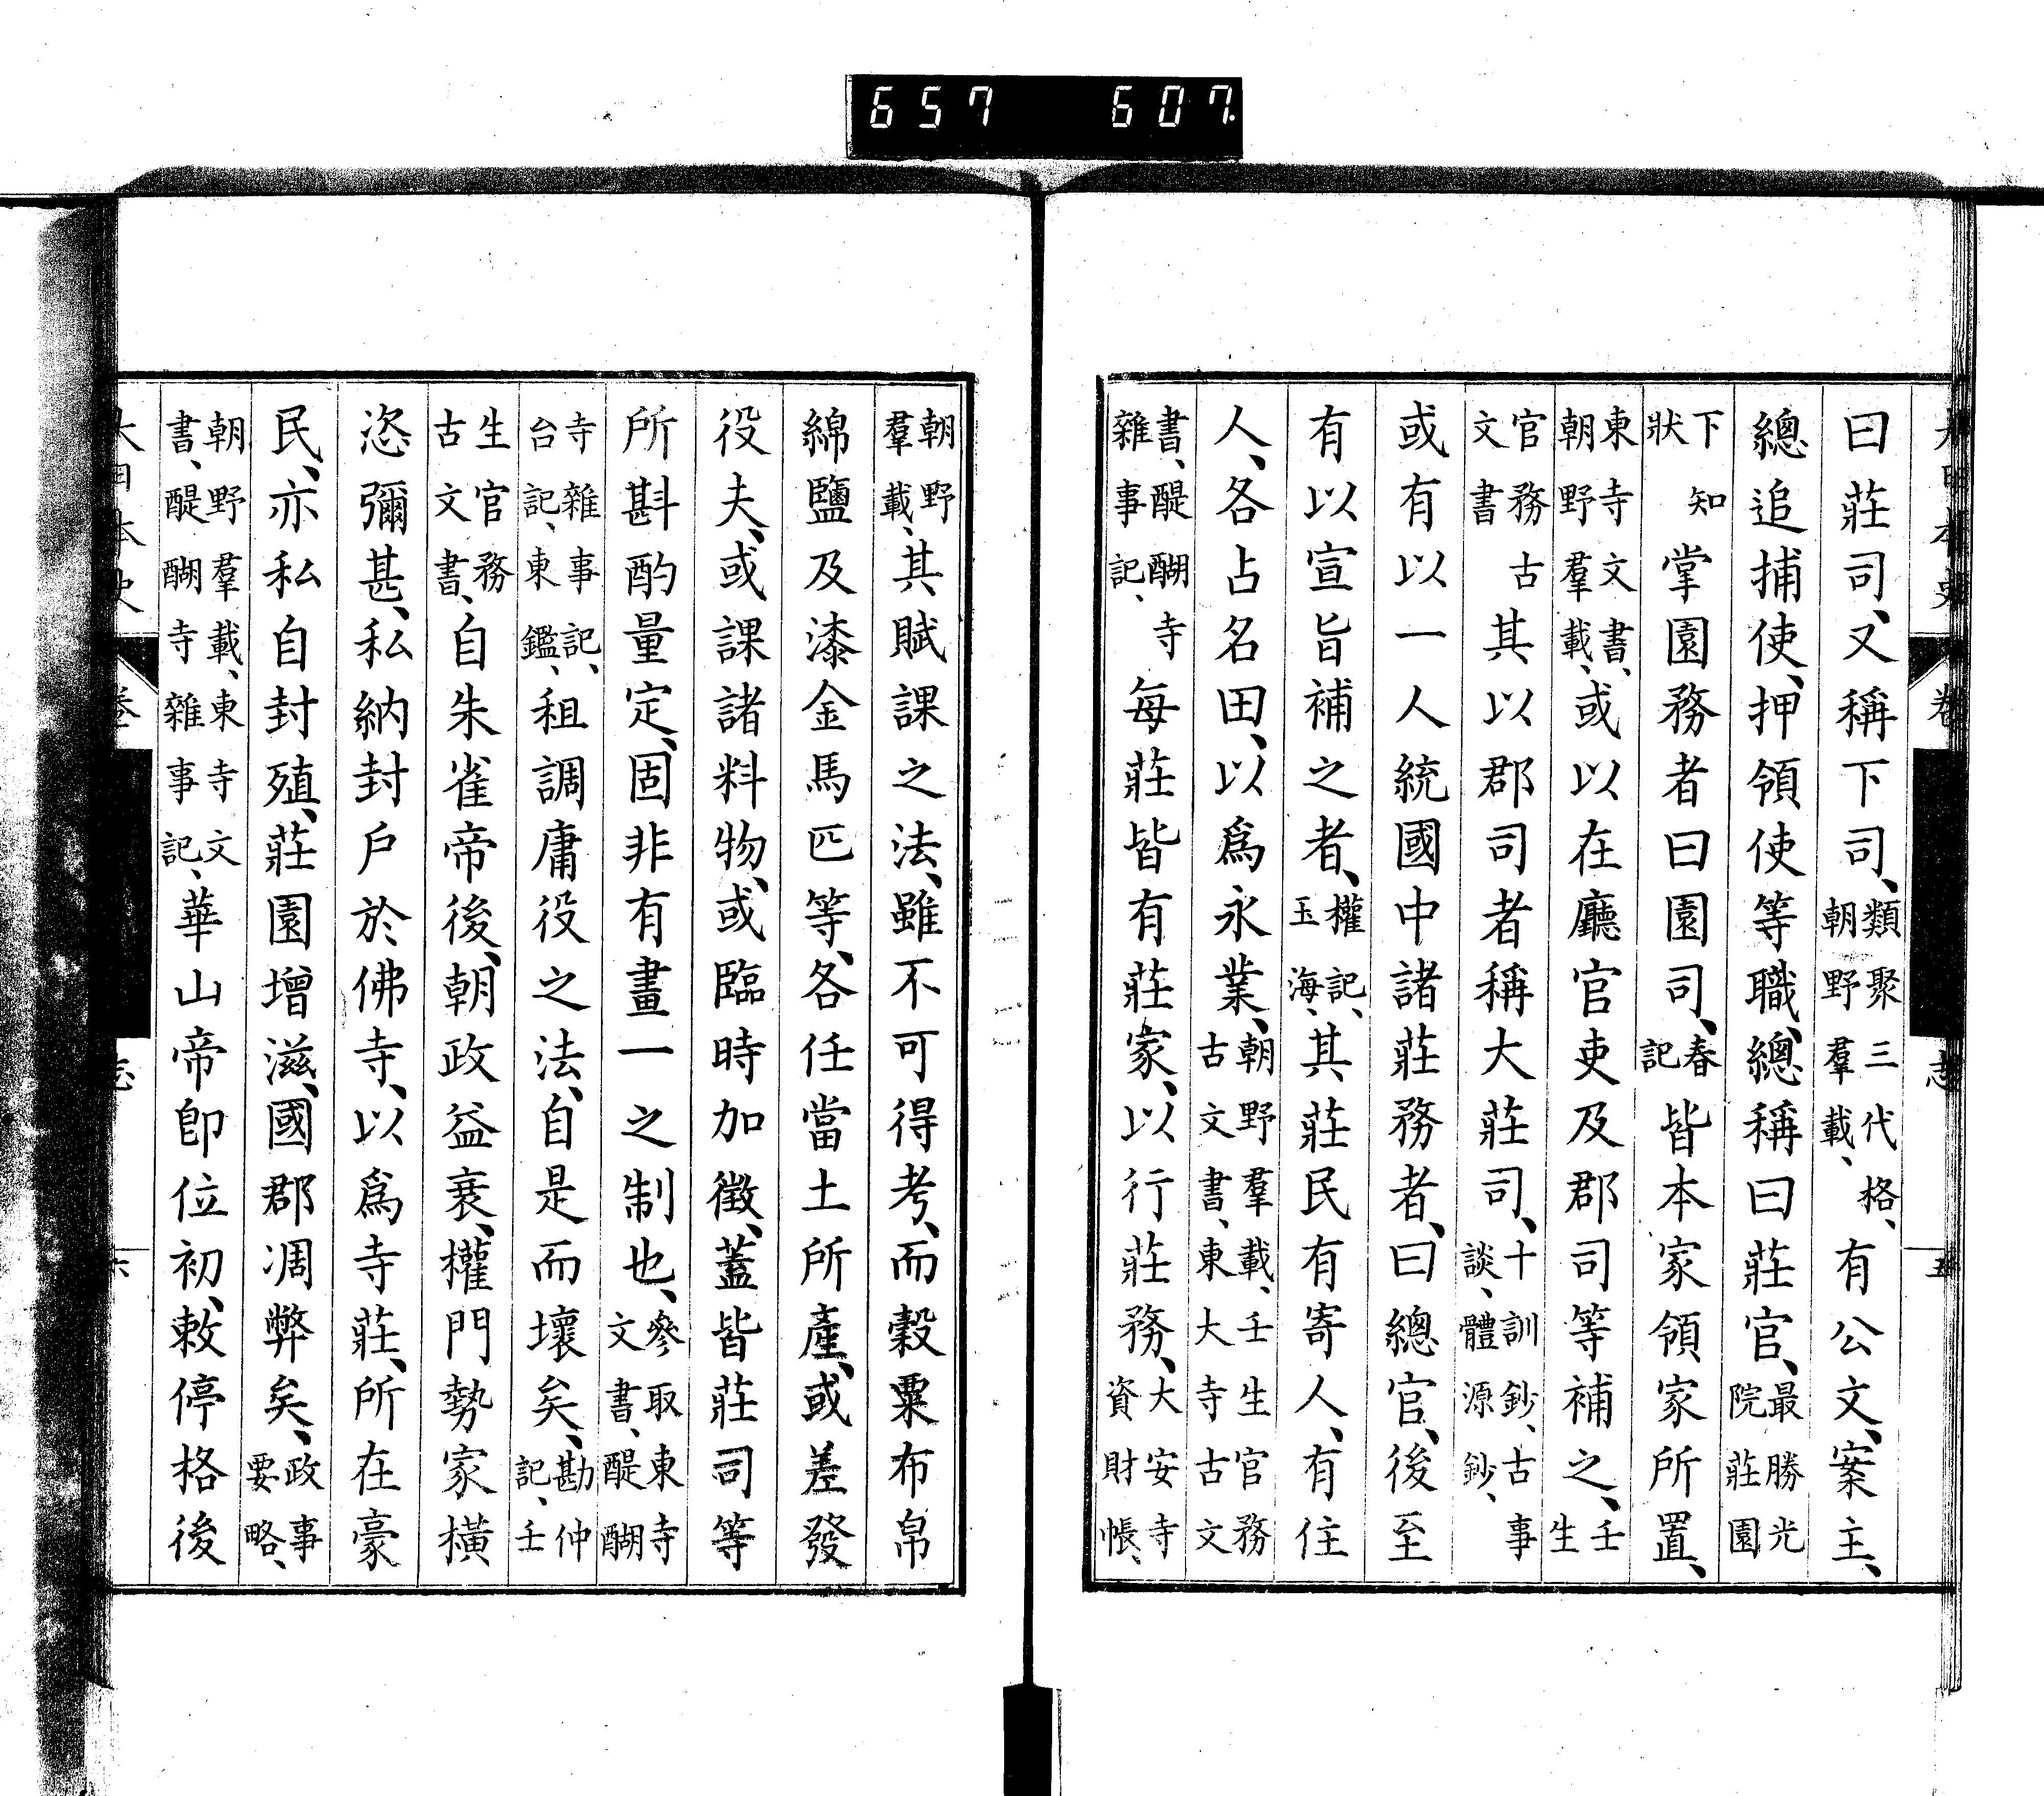 657 607.
曰莊司、又稱下司、類聚三代格、朝野羣載、有公文、案主、
總追捕使、押領使等職、總稱曰莊官、最勝光院莊園
下知狀掌園務者曰園司、春記皆本家領家所置、
東寺文書、朝野羣載、或以在廳官吏及郡司等補之、壬生
官務古文書其以郡司者稱大莊司、十訓鈔、古事談、體源鈔、
或有以一人統國中諸莊務者、曰總官、後至
有以宣旨補之者、權記、玉海、其莊民有寄人、有住
人、各占名田、以爲永業、朝野羣載、壬生官務古文書、東大寺古文
書、醍醐寺雜事記、每莊皆有莊家、以行莊務、大安寺資財帳、
朝野羣載、其賦課之法、雖不可得考、而穀粟布帛
綿鹽及漆金馬匹等、各任當土所產、或差發
役夫、或課諸料物、或臨時加徵、蓋皆莊司等
所斟酌量定、固非有畫一之制也、參取東寺文書、醍醐
寺雜事記、台記、東鑑、租調庸役之法、自是而壞矣、勘仲記、壬
生官務古文書、自朱雀帝後、朝政益衰、權門勢家橫
恣彌甚、私納封戶於佛寺、以爲寺莊、所在豪
民、亦私自封殖、莊園增滋、國郡凋弊矣、政事要略、
朝野羣載、東寺文書、醍醐寺雜事記、華山帝卽位初、敕停格後
大日本史 卷 志 六